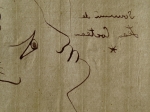 Souvenir de
Jean Cocteau
*